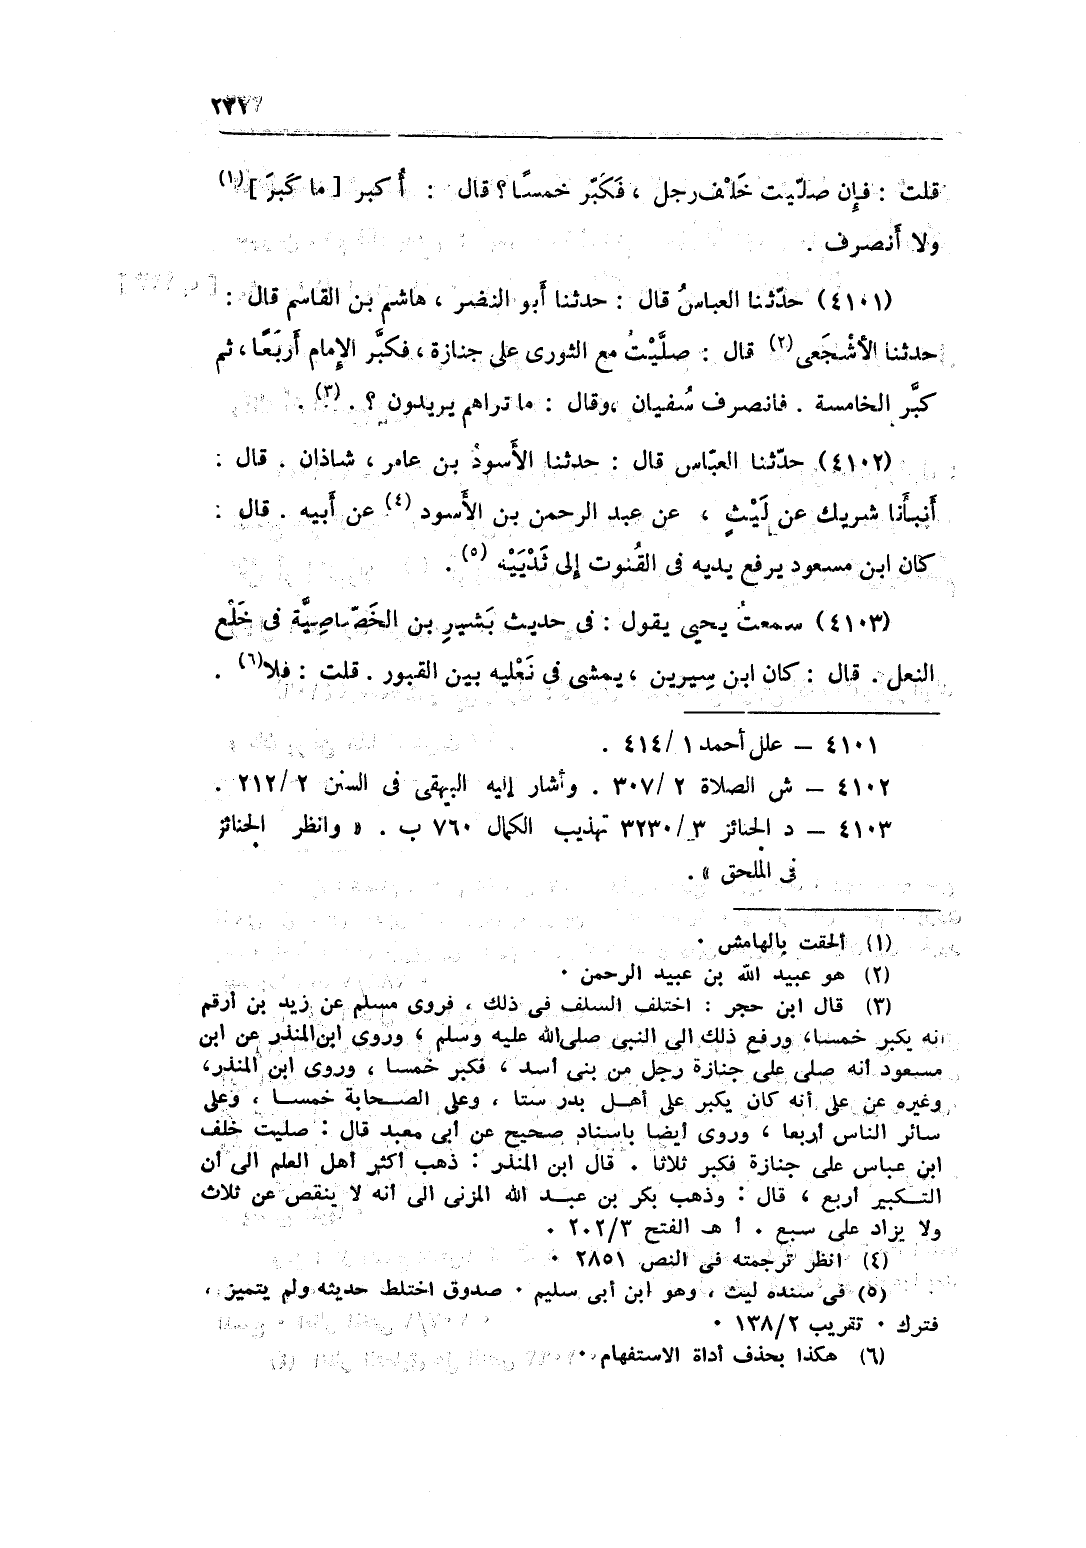 قلت : فإن صلّيت خَلْف رجل ، فَكَبّر خمسًا ؟ قال : أُكبر [ ما كَبرَ ] (١)
ولا أَنصرف .
(٤١٠١) حدّثنا العباسُ قال : حدثنا أَبو النضر ، هاشم بن القاسم قال :
حدثنا الأشْجَعى (٢) قال : صلَّيْتُ مع الثورى على جنازة ، فكبَّر الإِمام أَربَعًا ، ثم
كبَّر الخامسة . فانصرف سُفيان ، وقال : ما تراهم يريدون ؟ . (٣) .
(٤١٠٢) حدّثنا العبّاس قال : حدثنا الأَسودُ بن عامر ، شاذان . قال :
أَنبأَنا شريك عن لَيْثٍ ، عن عبد الرحمن بن الأَسود (٤) عن أَبيه . قال :
كان ابن مسعود يرفع يديه فى القُنوت إلى ثَدْيَيْه (٥) .
(٤١٠٣) سمعتُ يحيى يقول : فى حديث بَشيرِ بن الخَصَّاصِيَّة فى خَلْع
النعل . قال : كان ابن سِيرين ، يمشى فى نَعْليه بين القبور . قلت : فلا (٦) .
٤١٠١ – علل أحمد ١ /٤١٤ .
٤١٠٢ – ش الصلاة ٢ /٣٠٧ . وأشار إليه البيهقى فى السنن ٢ /٢١٢ .
٤١٠٣ – د الجنائز ٣ /٣٢٣٠ تهذيب الكمال ٧٦٠ ب . « وانظر الجنائز
فى الملحق » .
(١) ألحقت بالهامش .
(٢) هو عبيد الله بن عبيد الرحمن .
(٣) قال ابن حجر : اختلف السلف فى ذلك ، فروى مسلم عن زيد بن أرقم
انه يكبر خمسا، ورفع ذلك الى النبى صلى الله عليه وسلم ، وروى ابن المنذر عن ابن
مسعود أنه صلى على جنازة رجل من بنى أسد ، فكبر خمسا ، وروى ابن المنذر،
وغيره عن على أنه كان يكبر على أهل بدر ستا ، وعلى الصحابة خمسا ، وعلى
سائر الناس أربعا ، وروى أيضا باسناد صحيح عن أبى معبد قال : صليت خلف
ابن عباس على جنازة فكبر ثلاثا . قال ابن المنذر : ذهب أكثر أهل العلم الى أن
التكبير أربع ، قال : وذهب بكر بن عبد الله المزنى الى أنه لا ينقص عن ثلاث
ولا يزاد على سبع . أ هـ الفتح ٢٠٢/٣ .
(٤) انظر ترجمته فى النص ٢٨٥١ .
(٥) فى سنده ليث ، وهو ابن أبى سليم . صدوق اختلط حديثه ولم يتميز ،
فترك . تقريب ١٣٨/٢ .
(٦) هكذا بحذف أداة الاستفهام .